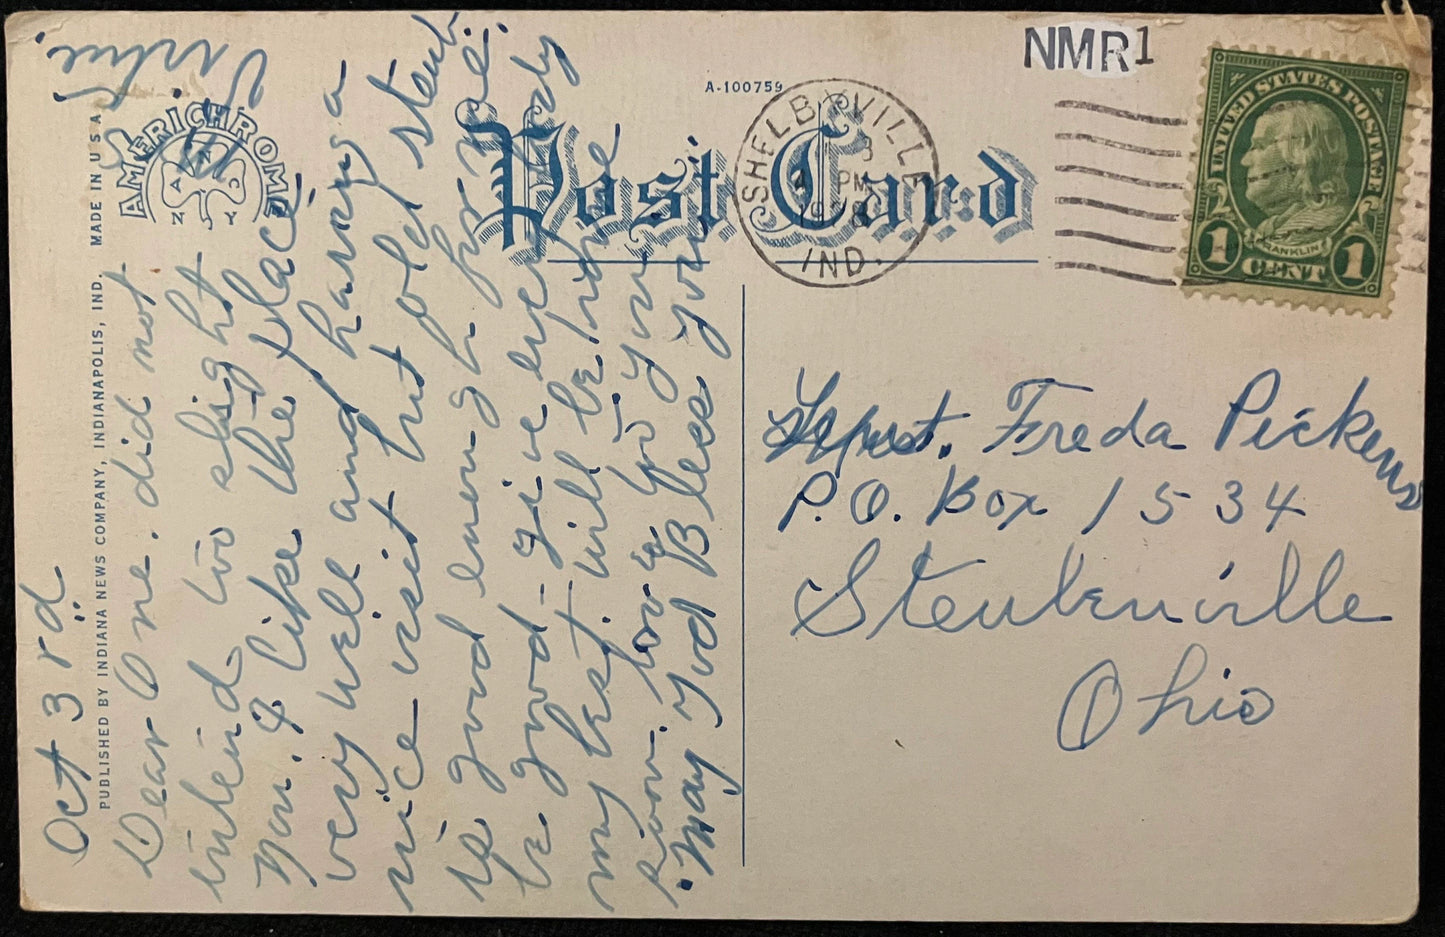 Oct 3rd
Dear One. did not
intend to slight
you. I like the place
very well and having a
nice visit but old steub.
is good enough for me.
be good - give every body
my best. will be home
soon. love to you
. May God Bless you.
Virtue.
PUBLISHED BY INDIANA NEWS COMPANY, INDIANAPOLIS, IND. MADE IN U S A
AMERICHROME
A N C D
N Y
Post Card
A-100759
NMR1
SHELBYVILLE
3
PM
IND.
UNITED STATES POSTAGE
FRANKLIN
1 CENT 1
Freda Pickens
P.O. Box 1534
Steubenville
Ohio